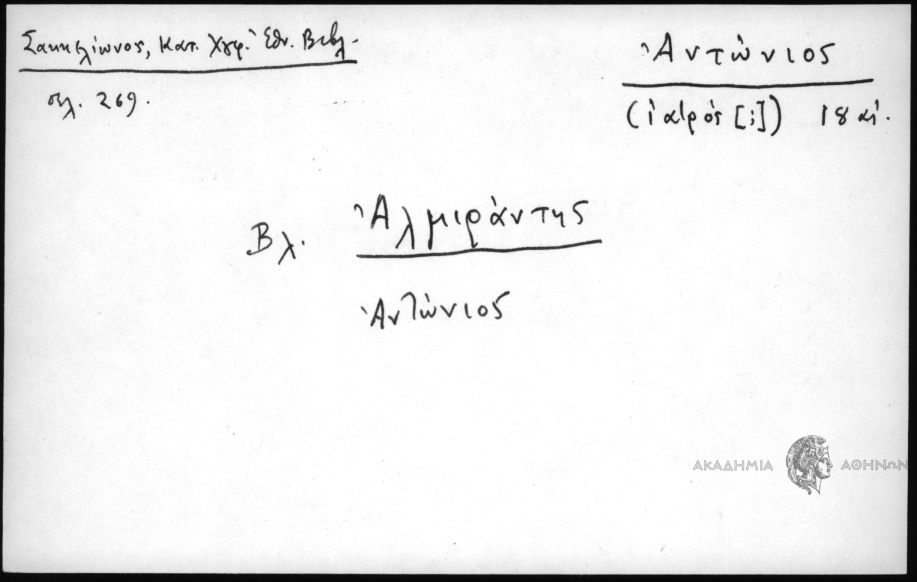 Σακκελίωνος, Κατ. Χγφ. Ἐθν. Βιβλ.
σελ. 269.
Ἀντώνιος
(ἰατρός [;]) 18 αἰ.
Βλ. Ἀλμιράντης
Ἀντώνιος
ΑΚΑΔΗΜΙΑ ΑΘΗΝΩΝ